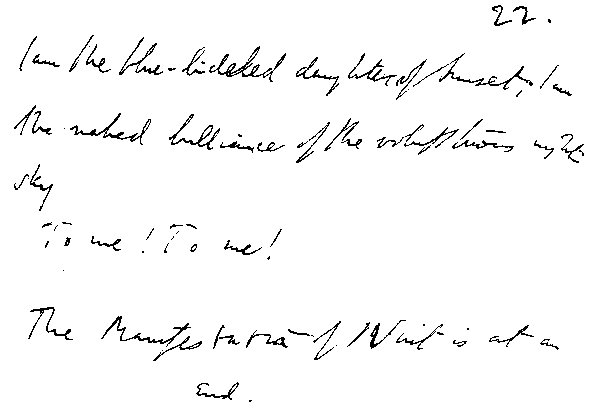 22.
I am the blue-lidded daughter of Sunset; I am
the naked brilliance of the voluptuous night-
sky
To me! To me!
The Manifestation of Nuit is at an
end.